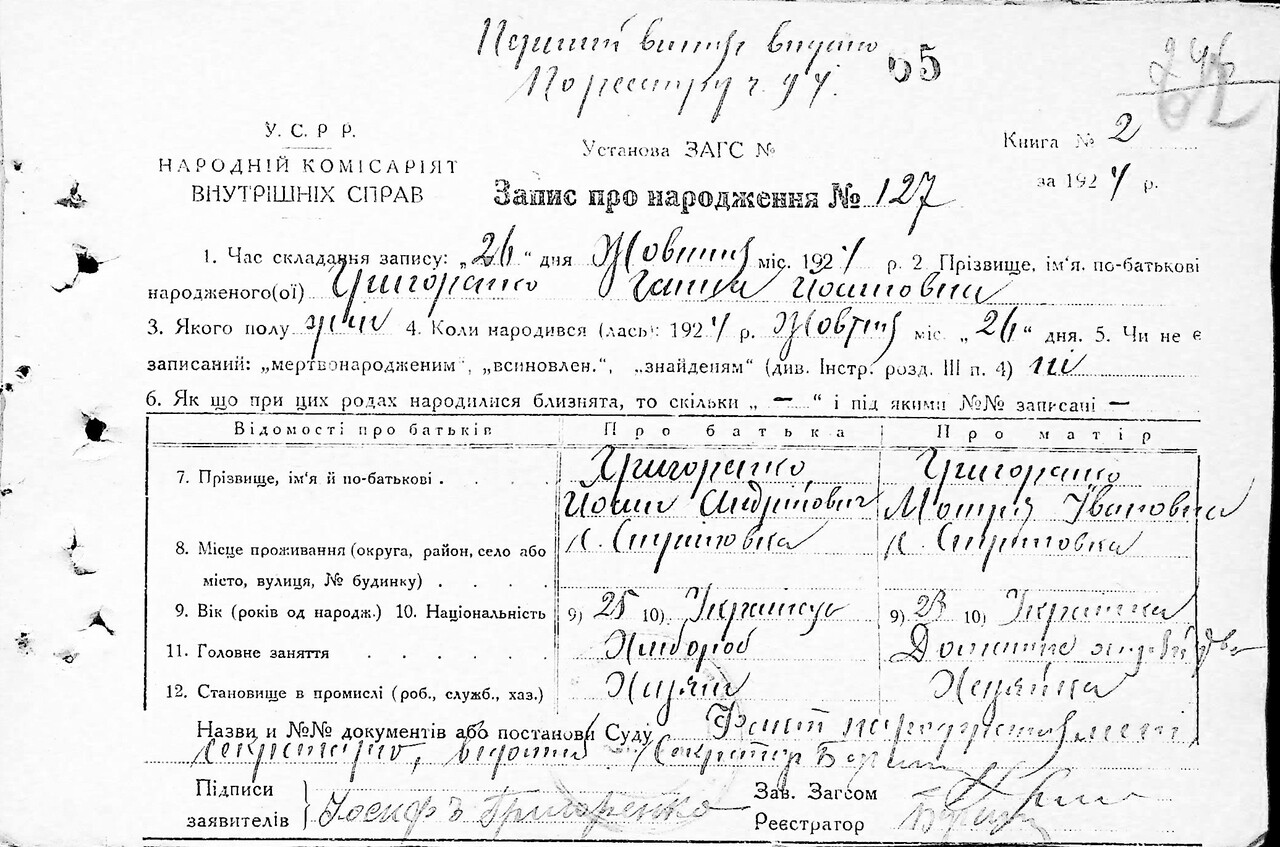 Перший витяг видано
По реестру ч. 94.
65
246
У. С. Р Р.
НАРОДНІЙ КОМІСАРІЯТ
ВНУТРІШНІХ СПРАВ
Установа ЗАГС №
Книга № 2
за 1924 р.
Запис про народження № 127
1. Час складання запису: „26“ дня Жовтня міс. 1924 р. 2. Прізвище, ім‘я, по-батькові
народженого(ої) Григоренко Ганна Йосиповна
3. Якого полу жін 4. Коли народився (лась): 1924 р. Жовтня міс. „26“ дня. 5. Чи не є
записаний: „мертвонародженим“, „всиновлен.“, „знайденям“ (див. Інстр. розд. III п. 4) ні
6. Як що при цих родах народилися близнята, то скільки „ — “ і під якими №№ записані —
Відомості про батьків Про батька Про матір
7. Прізвище, ім‘я й по-батькові . . . . Григоренко Григоренко
Йосип Андрійович Мотря Івановна
8. Місце проживання (округа, район, село або х. х.
місто, вулиця, № будинку) . . . .
9. Вік (років од народж.) 10. Національність 9) 25 10) Українець 9) 23 10) Українка
11. Головне заняття . . . . . . Хлибороб Домашнє
12. Становище в промислі (роб., служб., хаз.) Хазяїн Хазяйка
Назви и №№ документів або постанови Суду Факт народження
Секретарь
Підписи
заявителів Іосифъ Григоренко
Зав. Загсом
Реєстратор